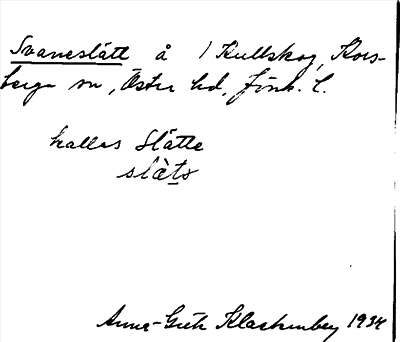 Svaneslätt å 1 Kullskog, Kors-
berga sn, Östra hd, Jönk. l.
kallas Slätte
slàts
Anna-Greta Klackenberg 1934